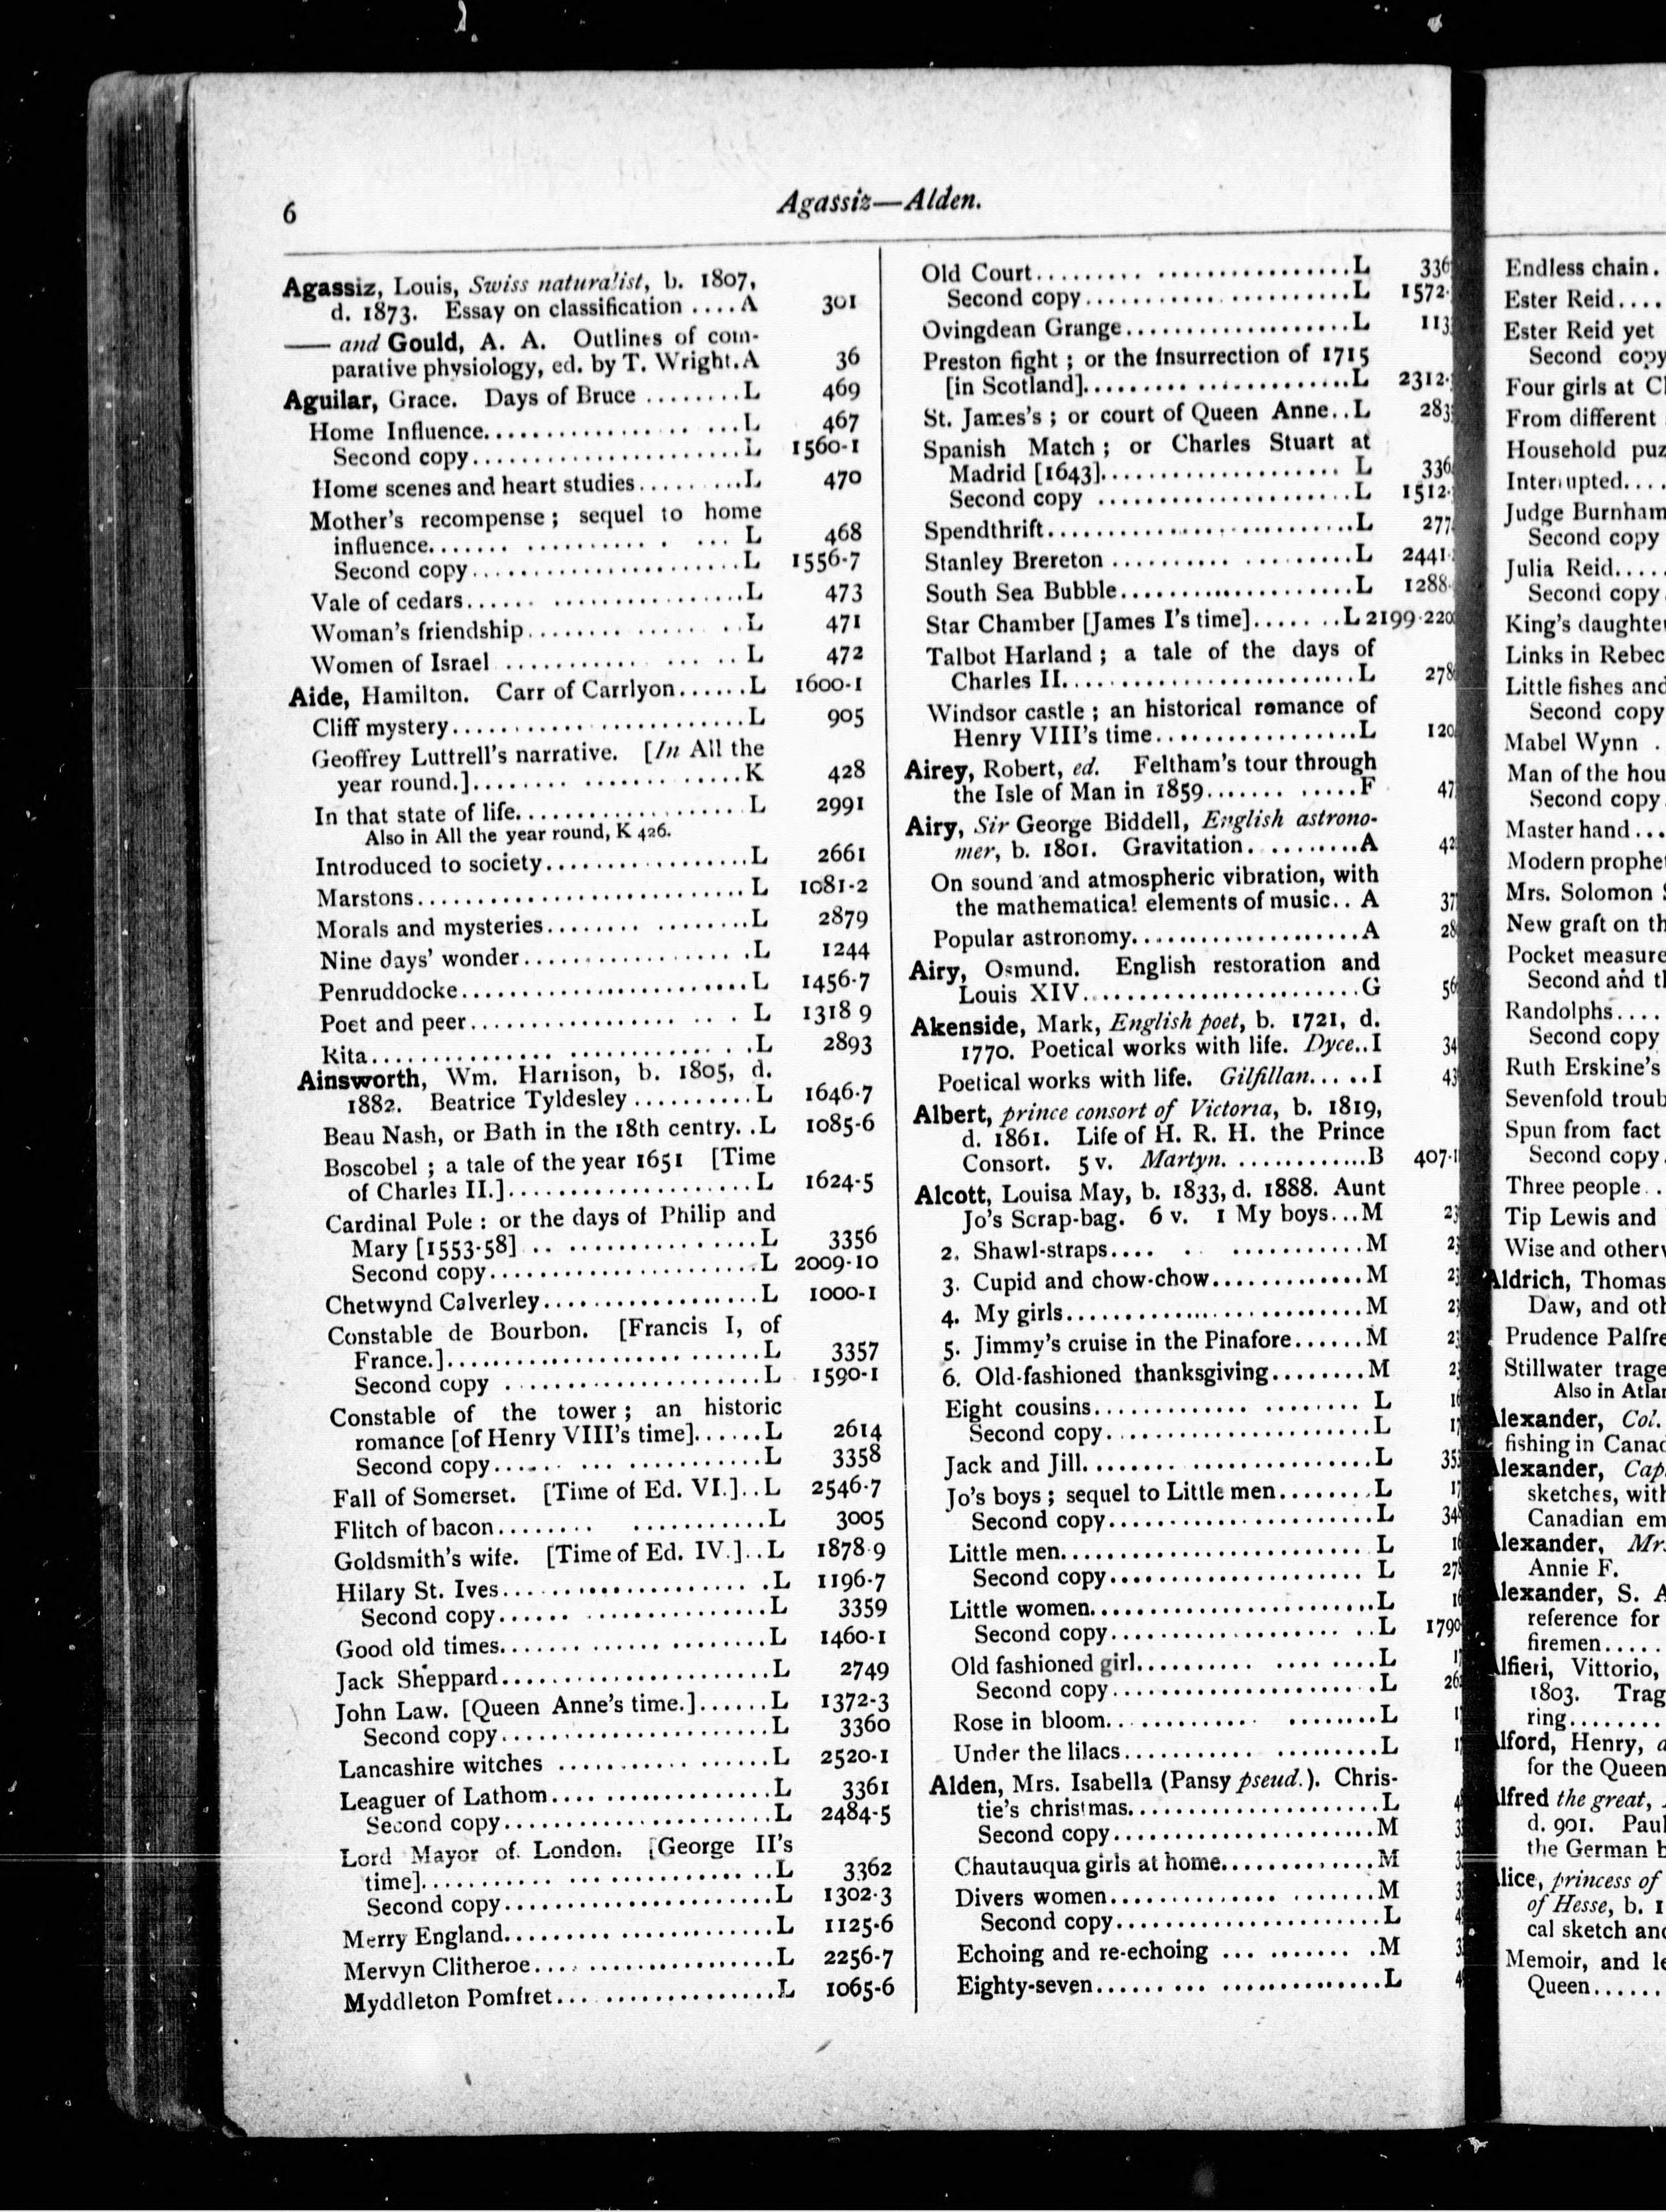 6
Agassiz—Alden.
Agassiz, Louis, Swiss naturalist, b. 1807,
d. 1873. Essay on classification ....A 301
—— and Gould, A. A. Outlines of com-
parative physiology, ed. by T. Wright.A 36
Aguilar, Grace. Days of Bruce ........L 469
Home Influence................. ...L 467
Second copy........................L 1560-1
Home scenes and heart studies.........L 470
Mother's recompense; sequel to home
influence....... ........... . ... L 468
Second copy........................L 1556-7
Vale of cedars...... .................L 473
Woman's friendship......... ....... ..L 471
Women of Israel ............ ... .. L 472
Aide, Hamilton. Carr of Carrlyon......L 1600-1
Cliff mystery..........................L 905
Geoffrey Luttrell's narrative. [In All the
year round.]......... ..............K 428
In that state of life.......................L 2991
Also in All the year round, K 426.
Introduced to society...................L 2661
Marstons..............................L 1081-2
Morals and mysteries......... ........L 2879
Nine days' wonder................. .L 1244
Penruddocke..........................L 1456-7
Poet and peer................. ... . L 1318 9
Rita................ ............. .L 2893
Ainsworth, Wm. Harrison, b. 1805, d.
1882. Beatrice Tyldesley ..........L 1646-7
Beau Nash, or Bath in the 18th centry. .L 1085-6
Boscobel ; a tale of the year 1651 [Time
of Charles II.]......................L 1624-5
Cardinal Pole : or the days of Philip and
Mary [1553-58] .. ..................L 3356
Second copy........................L 2009-10
Chetwynd Calverley....................L 1000-1
Constable de Bourbon. [Francis I, of
France.]............................L 3357
Second copy .......................L 1590-1
Constable of the tower; an historic
romance [of Henry VIII's time]......L 2614
Second copy...... ... ............L 3358
Fall of Somerset. [Time of Ed. VI.]..L 2546-7
Flitch of bacon........ ............L 3005
Goldsmith's wife. [Time of Ed. IV.]..L 1878 9
Hilary St. Ives....................... .L 1196-7
Second copy...... .................L 3359
Good old times........ ...............L 1460-1
Jack Sheppard........................L 2749
John Law. [Queen Anne's time.]......L 1372-3
Second copy........................L 3360
Lancashire witches ........... .......L 2520-1
Leaguer of Lathom.... ................L 3361
Second copy........................L 2484-5
Lord Mayor of London. [George II's
time]............ ... ............. ..L 3362
Second copy........................L 1302-3
Merry England......... ..............L 1125-6
Mervyn Clitheroe.... .................L 2256-7
Myddleton Pomfret... .................L 1065-6
Old Court......... ..................L 336
Second copy........................L 1572-
Ovingdean Grange....................L 113
Preston fight ; or the insurrection of 1715
[in Scotland]......... ..............L 2312-
St. James's ; or court of Queen Anne..L 283
Spanish Match ; or Charles Stuart at
Madrid [1643]...................... L 336
Second copy .......................L 1512-
Spendthrift............................L 277
Stanley Brereton ........... ..........L 2441-
South Sea Bubble......................L 1288-
Star Chamber [James I's time]...... ..L 2199-220
Talbot Harland ; a tale of the days of
Charles II...........................L 278
Windsor castle ; an historical romance of
Henry VIII's time...................L 120
Airey, Robert, ed. Feltham's tour through
the Isle of Man in 1859....... .....F 47
Airy, Sir George Biddell, English astrono-
mer, b. 1801. Gravitation. .........A 42
On sound and atmospheric vibration, with
the mathematical elements of music.. A 37
Popular astronomy.....................A 28
Airy, Osmund. English restoration and
Louis XIV..........................G 56
Akenside, Mark, English poet, b. 1721, d.
1770. Poetical works with life. Dyce..I 34
Poetical works with life. Gilfillan.... ..I 43
Albert, prince consort of Victoria, b. 1819,
d. 1861. Life of H. R. H. the Prince
Consort. 5 v. Martyn. ............B 407-1
Alcott, Louisa May, b. 1833, d. 1888. Aunt
Jo's Scrap-bag. 6 v. 1 My boys...M 23
2. Shawl-straps.... . . ............M 2
3. Cupid and chow-chow.............M 2
4. My girls..........................M 2
5. Jimmy's cruise in the Pinafore......M 2
6. Old-fashioned thanksgiving........M 2
Eight cousins............. ......... L 1
Second copy........................L 1
Jack and Jill......... ................L 35
Jo's boys ; sequel to Little men.........L 1
Second copy........................L 34
Little men............................L 1
Second copy........................ L 27
Little women..........................L 1
Second copy.................... ..L 1790
Old fashioned girl.......... .........L 1
Second copy...................... .L 26
Rose in bloom............. ........L 1
Under the lilacs............ .........L 1
Alden, Mrs. Isabella (Pansy pseud.). Chris-
tie's christmas........................L 4
Second copy........................M 3
Chautauqua girls at home..............M 3
Divers women.............. .......M 3
Second copy........................L 4
Echoing and re-echoing ... ....... .M 3
Eighty-seven......... ... .............L 4
Endless chain.
Ester Reid....
Ester Reid yet
Second copy
Four girls at C
From different
Household puz
Interrupted....
Judge Burnham
Second copy
Julia Reid.....
Second copy
King's daughte
Links in Rebec
Little fishes and
Second copy
Mabel Wynn .
Man of the hou
Second copy
Master hand...
Modern prophe
Mrs. Solomon S
New graft on th
Pocket measure
Second and th
Randolphs....
Second copy
Ruth Erskine's
Sevenfold troub
Spun from fact
Second copy.
Three people..
Tip Lewis and
Wise and otherw
Aldrich, Thomas
Daw, and oth
Prudence Palfre
Stillwater trage
Also in Atlan
lexander, Col.
fishing in Canad
lexander, Cap
sketches, with
Canadian em
lexander, Mr
Annie F.
lexander, S. A
reference for
firemen.....
lfieri, Vittorio,
1803. Trag
ring........
lford, Henry, a
for the Queen
lfred the great,
d. 901. Paul
the German b
lice, princess of
of Hesse, b. 1
cal sketch and
Memoir, and le
Queen......